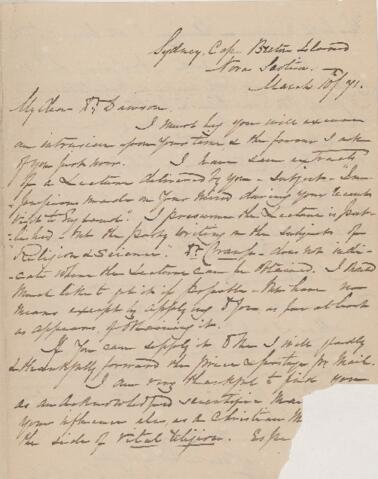 Sydney, Cape Breton Island
Nova Scotia.
March 10th/71.
My Dear Dr Dawson.
I must beg you will excuse
an intrusion upon your time & the favour I ask
of you just now. I have seen extracts
of a Lecture delivered by you - Subject - "Im-
pressions made on your mind during your recent
visit to England". I presume the Lecture is pub-
lished - but the party writing on the subjects of
"Religion & Science" Dr. does not indi-
cate where the Lecture can be obtained. I would
much like to get it if possible - but have no
means except by applying to you, as far at least
as appears, of obtaining it.
If you can supply it to me I will gladly
& thankfully forward the price & postage pr Mail.
I am very thankful to find you
as an acknowledged scientific Man
your influence also, as a Christian M
the side of vital religion. Espe